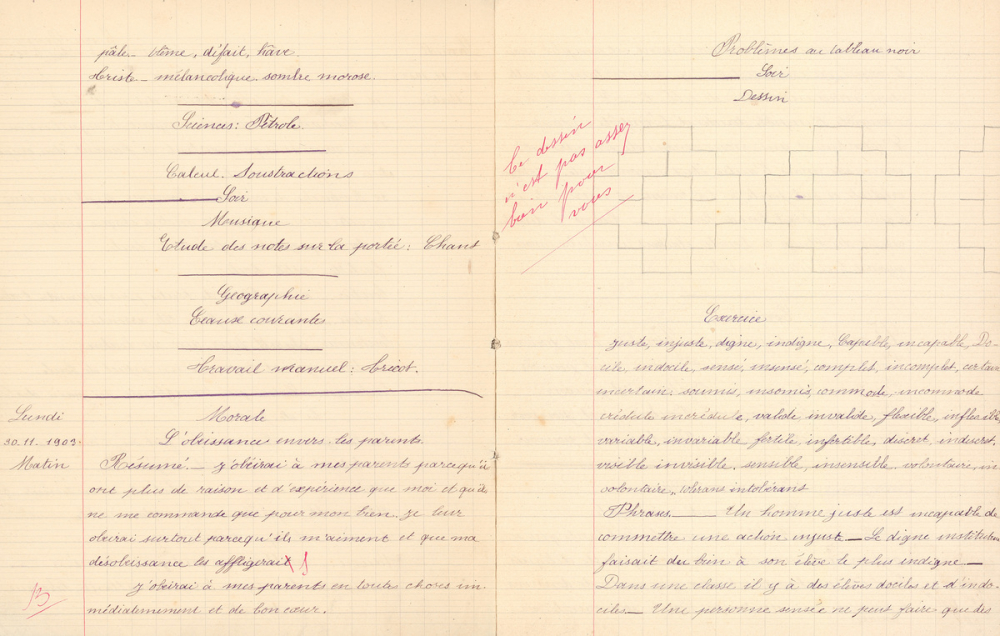 pâle _ blême, défait, hâve
triste _ mélancolique. sombre morose.
Sciences: Pétrole
Calcul. Soustractions
Soir
Musique
Etude des notes sur la portée: Chant
Geographie
Eeause courantes
Travail manuel: tricot.
Lundi
30.11.1903.
Matin
Morale
L'obeissance invers les parents.
Résumé. _ J'obéirai à mes parents parcequ'il
ont plus de raison et d'expérience que moi et qu'ils
ne me commande que pour mon bien. je leur
obeirai surtout parcequ'ils m'aiment et que ma
désobeissance les affligerait
J'obéirai à mes parents en toute choses im
médiatement et de bon cœur.
B
Problèmes au tableau noir
Soir
Dessin
Ce dessin
n'est pas assez
bien pour
vous
Exercice
juste, injuste, digne, indigne, Capable, incapable, Do-
cile, indocile, sensé, insensé, complet, incomplet, certain
incertain, soumis, insomis, commode, incommode
crédule incrédule, valide invalide, flexible, inflexible,
variable, invariable fertile, infertible, discret, indiscret,
visible invisible, sensible, insensible, volontaire, in
volontaire, tolerans intolérans
Phrases. _ Un homme juste est incapable de
commettre une action injuste _ Le digne instituteur
faisait du bien à son élève le plus indigne _
Dans une classe il y à des élèves dociles et d'indo-
ciles. _ Une personne sensée ne peut faire que des